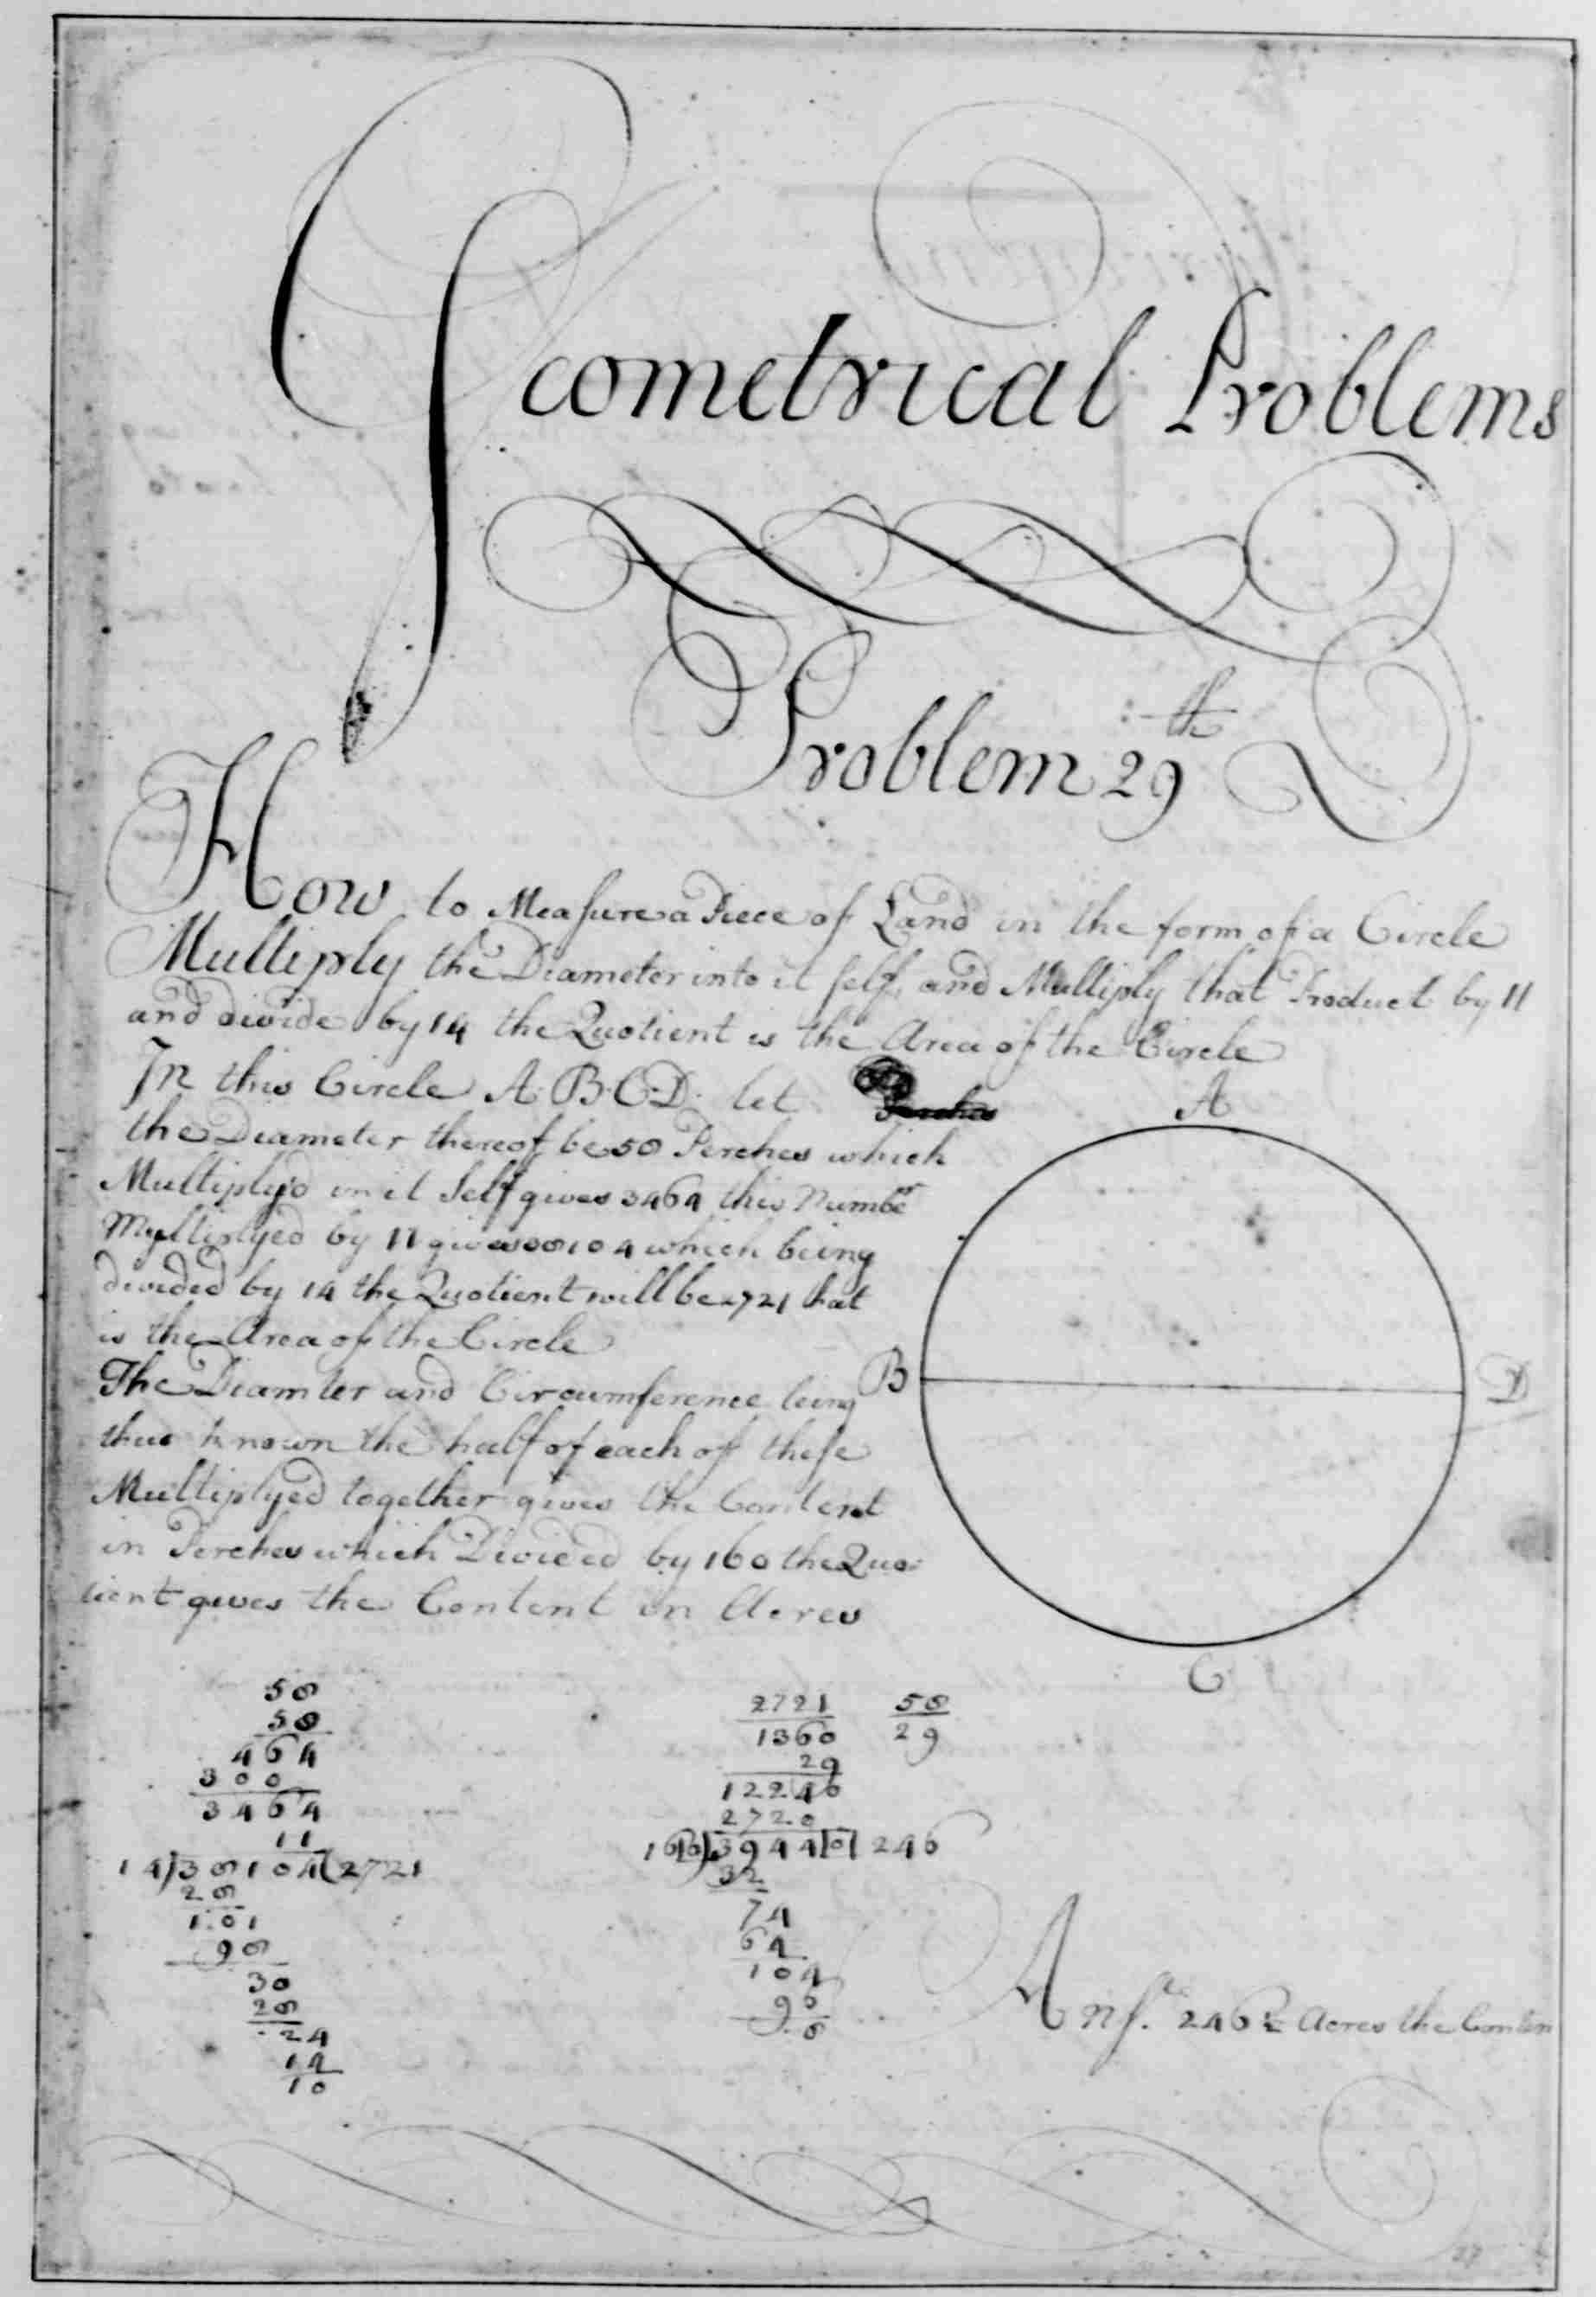 Geometrical Problems
Problem 29th
How to Measure a Piece of Land in the form of a Circle
Multiply the Diameter into it self, and Multiply that Product by 11
and divide by 14 the Quotient is the Area of the Circle
In this Circle A.B.C.D. let
the Diameter thereof be 58 Perches which
Multiply'd in it Self gives 3464 this Numbr
Multiplyed by 11 gives 38104 which being
divided by 14 the Quotient will be 2721 hat
is the Area of the Circle
The Diamter and Circumference being
thus known the half of each of these
Multiplyed together gives the Content
in Perches which Divided by 160 the Quo:
tient gives the Content in Acres
A
B
D
C
58
58
464
300
3464
11
14)38104(2721
28
101
98
30
28
24
14
10
2721 58
1360 29
29
12240
2720
16|0)3944|0| 246
32
74
64
104
96
8
Ansr. 246½ Acres the Conten